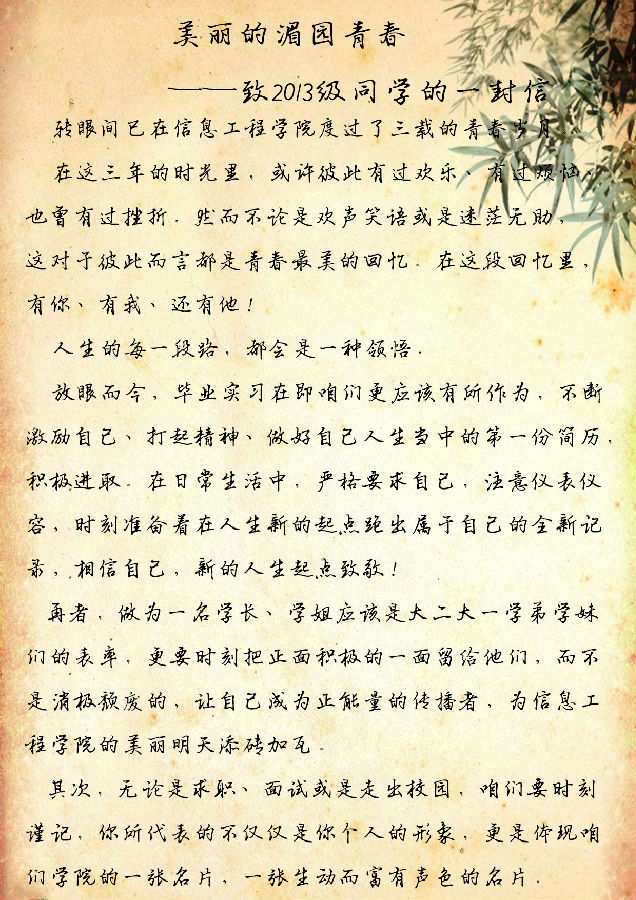 美丽的湄园青春
——致2013级同学的一封信
转眼间已在信息工程学院度过了三载的青春岁月。
在这三年的时光里，或许彼此有过欢乐、有过烦恼，
也曾有过挫折．然而不论是欢声笑语或是迷茫无助，
这对于彼此而言都是青春最美的回忆。在这段回忆里，
有你、有我、还有他！
人生的每一段路，都会是一种领悟．
放眼而今，毕业实习在即咱们更应该有所作为，不断
激励自己、打起精神、做好自己人生当中的第一份简历，
积极进取。在日常生活中，严格要求自己，注意仪表仪
容，时刻准备着在人生新的起点踏出属于自己的全新记
录，相信自己，新的人生起点致敬！
再者，做为一名学长、学姐应该是大二大一学弟学妹
们的表率，更要时刻把正面积极的一面留给他们，而不
是消极颓废的，让自己成为正能量的传播者，为信息工
程学院的美丽明天添砖加瓦。
其次，无论是求职、面试或是走出校园，咱们要时刻
谨记，你所代表的不仅仅是你个人的形象，更是体现咱
们学院的一张名片，一张生动而富有声色的名片．